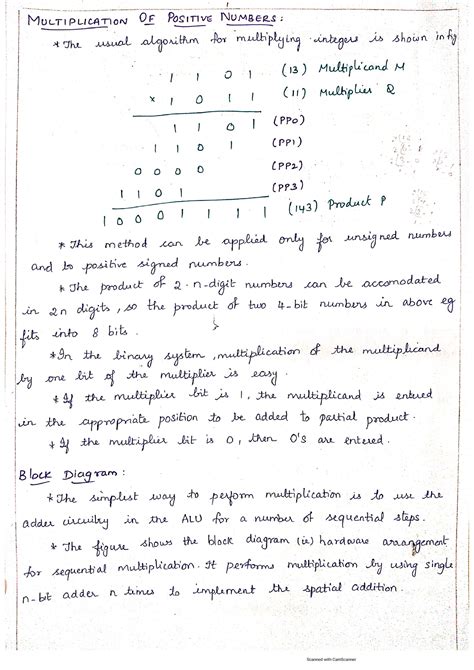 1
MULTIPLICATION OF POSITIVE NUMBERS:
* The usual algorithm for multiplying integers is shown in fig
1 1 0 1 (13) Multiplicand M
× 1 0 1 1 (11) Multiplier Q
1 1 0 1 (PP0)
1 1 0 1 (PP1)
0 0 0 0 (PP2)
1 1 0 1 (PP3)
1 0 0 0 1 1 1 1 (143) Product P
* This method can be applied only for unsigned numbers
and to positive signed numbers.
* The product of 2 n-digit numbers can be accomodated
in 2n digits, so the product of two 4-bit numbers in above eg
fits into 8 bits.
* In the binary system, multiplication of the multiplicand
by one bit of the multiplier is easy.
* If the multiplier bit is 1, the multiplicand is entered
in the appropriate position to be added to partial product.
* If the multiplier bit is 0, then 0's are entered.
Block Diagram:
* The simplest way to perform multiplication is to use the
adder circuitry in the ALU for a number of sequential steps.
* The figure shows the block diagram (ie) hardware arrangement
for sequential multiplication. It performs multiplication by using single
n-bit adder n times to implement the spatial addition.
Scanned with CamScanner